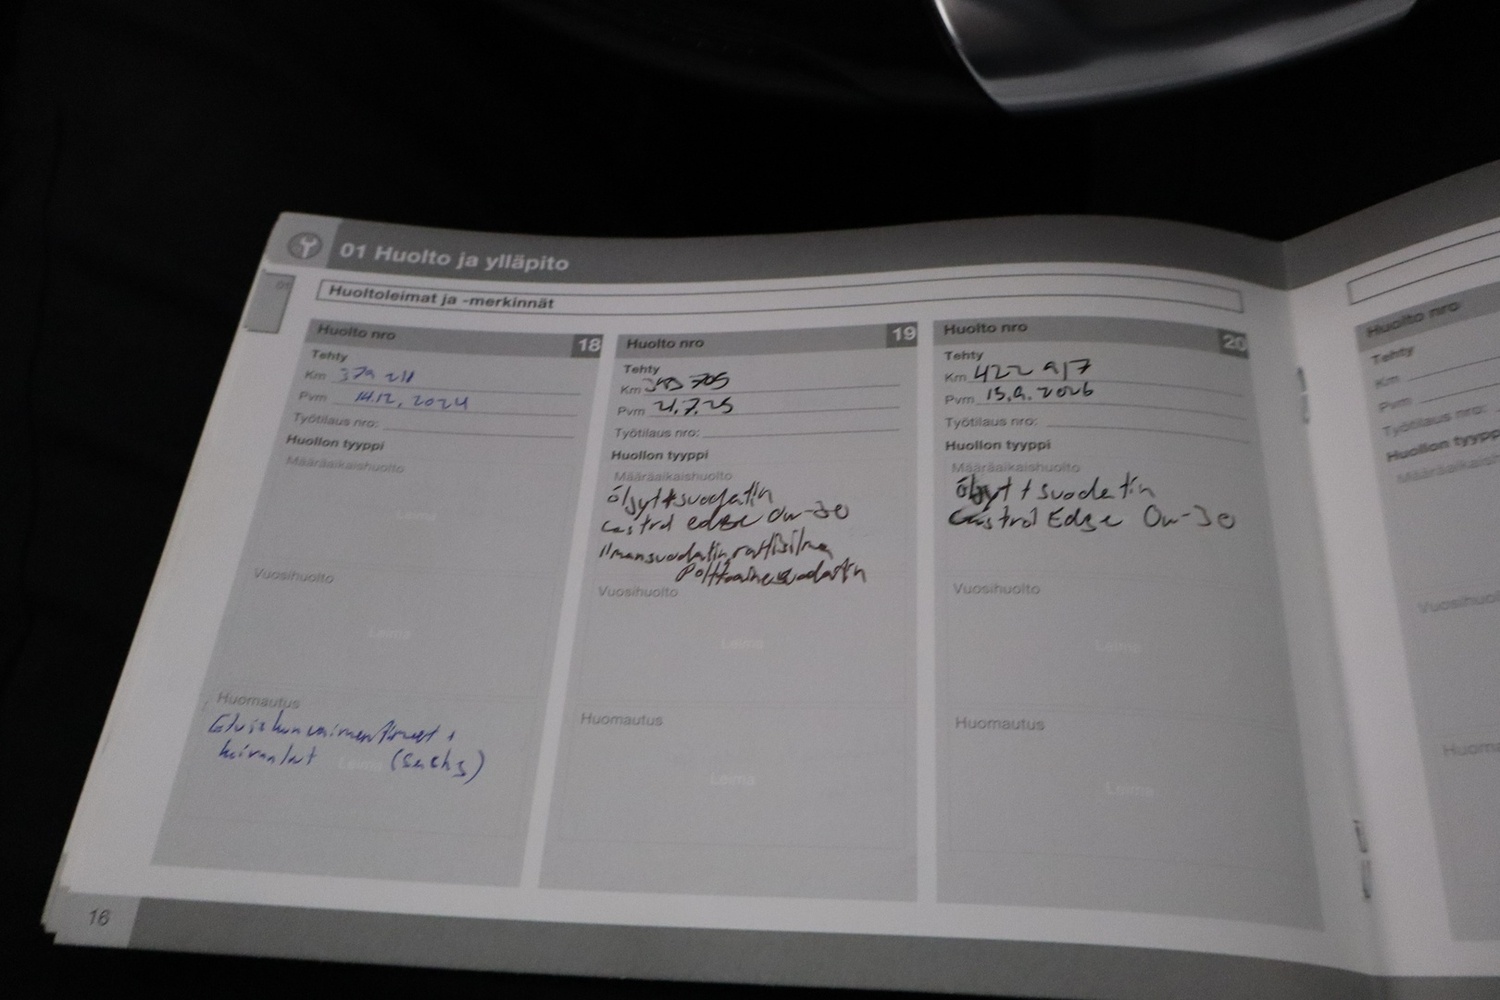 01 Huolto ja ylläpito
01
Huoltoleimat ja -merkinnät
Huolto nro 18
Tehty
Km 379 211
Pvm 14.12.2024
Työtilaus nro:
Huollon tyyppi
Määräaikaishuolto
Leima
Vuosihuolto
Leima
Huomautus
Etuiskunvaimentimet +
koiranluut (Sachs)
Leima
Huolto nro 19
Tehty
Km 705
Pvm 21.7.25
Työtilaus nro:
Huollon tyyppi
Määräaikaishuolto
öljyt+suodatin
Castrol edge 0w-30
Ilmansuodatin, raitisilma
Polttoainesuodatin
Vuosihuolto
Leima
Huomautus
Leima
Huolto nro 20
Tehty
Km 422 917
Pvm 15.9.2026
Työtilaus nro:
Huollon tyyppi
Määräaikaishuolto
öljyt + suodatin
Castrol Edge 0w-30
Vuosihuolto
Leima
Huomautus
Leima
16
Huolto nro
Tehty
Km
Pvm
Työtilaus nro:
Huollon tyypp
Määräaikaish
Vuosihuol
Huoma